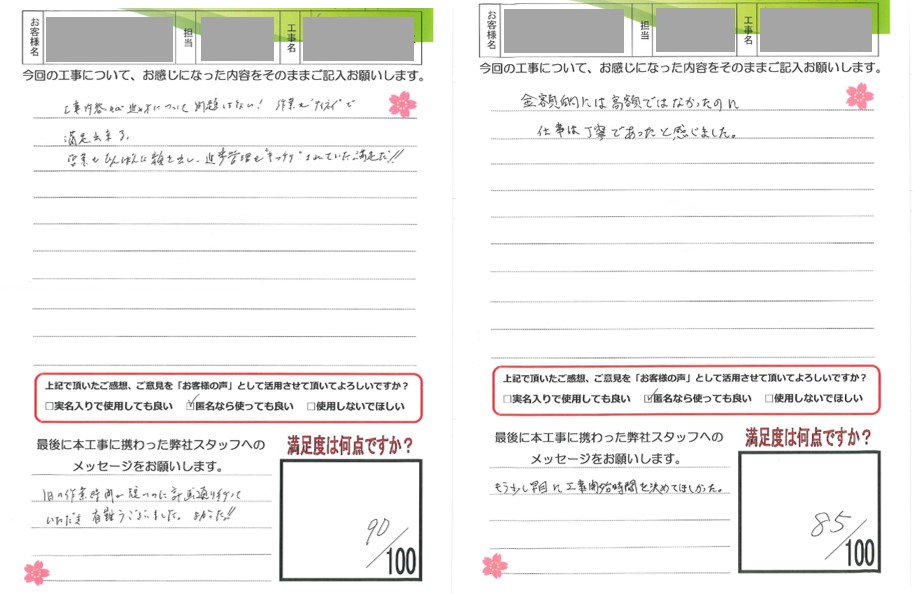 お客様名
担当
工事名
今回の工事について、お感じになった内容をそのままご記入お願いします。
工事内容及び進め方について問題はない! 作業もていねいで
満足出来る。
営業もひんぱんに顔を出し、進捗管理も"キッチリ"されていた満足だ!!
上記で頂いたご感想、ご意見を「お客様の声」として活用させて頂いてよろしいですか?
□実名入りで使用しても良い ☑匿名なら使っても良い □使用しないでほしい
最後に本工事に携わった弊社スタッフへの
メッセージをお願いします。
1日の作業時間が短いのに計画通り行って
いただき有難うございました。よかった!!
満足度は何点ですか?
90/100
お客様名
担当
工事名
今回の工事について、お感じになった内容をそのままご記入お願いします。
金額的には高額ではなかったのに
仕事は丁寧であったと感じました。
上記で頂いたご感想、ご意見を「お客様の声」として活用させて頂いてよろしいですか?
□実名入りで使用しても良い ☑匿名なら使っても良い □使用しないでほしい
最後に本工事に携わった弊社スタッフへの
メッセージをお願いします。
もう少し早目に工事開始時間を決めてほしかった。
満足度は何点ですか?
85/100